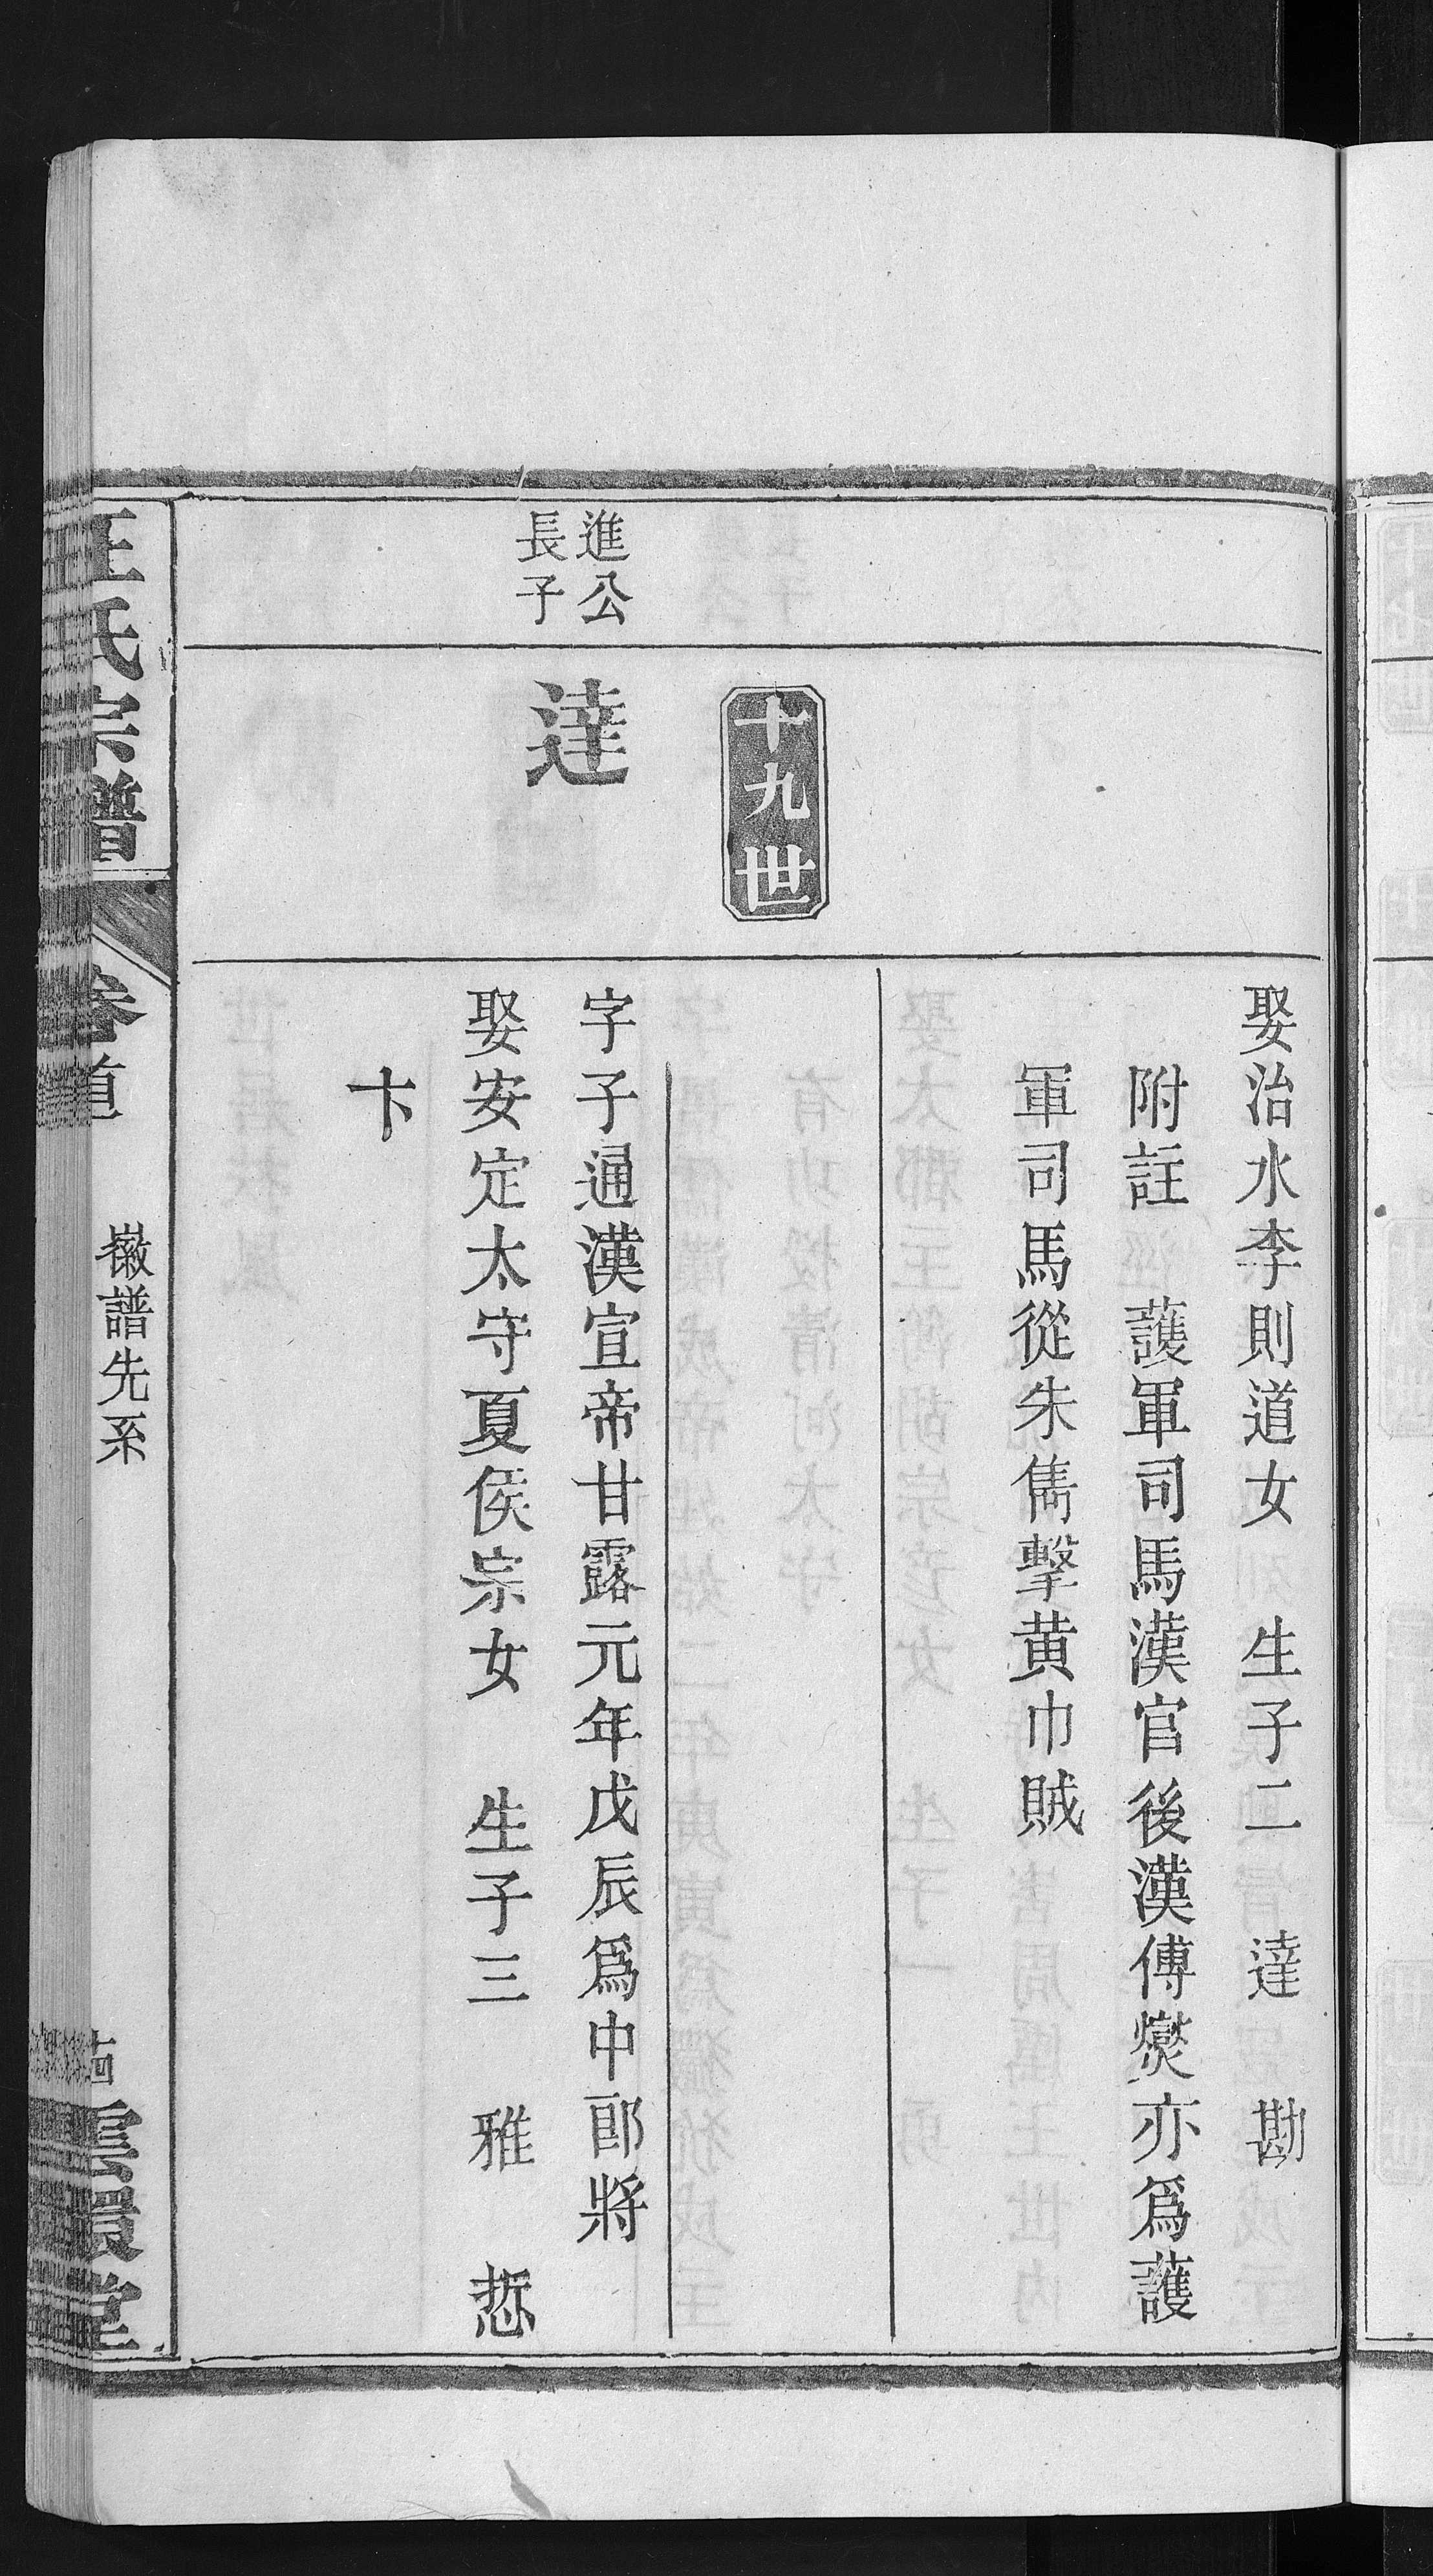 娶治水李則道女　生子二　達　勘
附註　護軍司馬漢官後漢傅燮亦爲護
軍司馬從朱儁擊黃巾賊
十九世
進公
長子
達
字子通漢宣帝甘露元年戊辰爲中郎將
娶安定太守夏侯宗女　生子三　雅　悊
卞
汪氏宗譜
卷
道
徽譜先系
十四
雲環堂